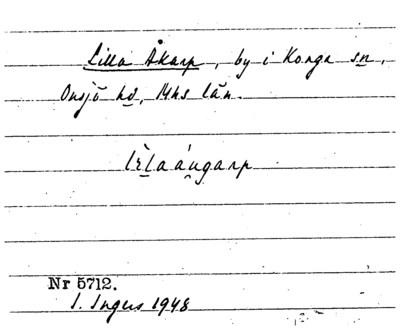 Lilla Åkarp, by i Konga sn,
Onsjö hd, Mhs län.
Nr 5712.
I. Ingers 1948